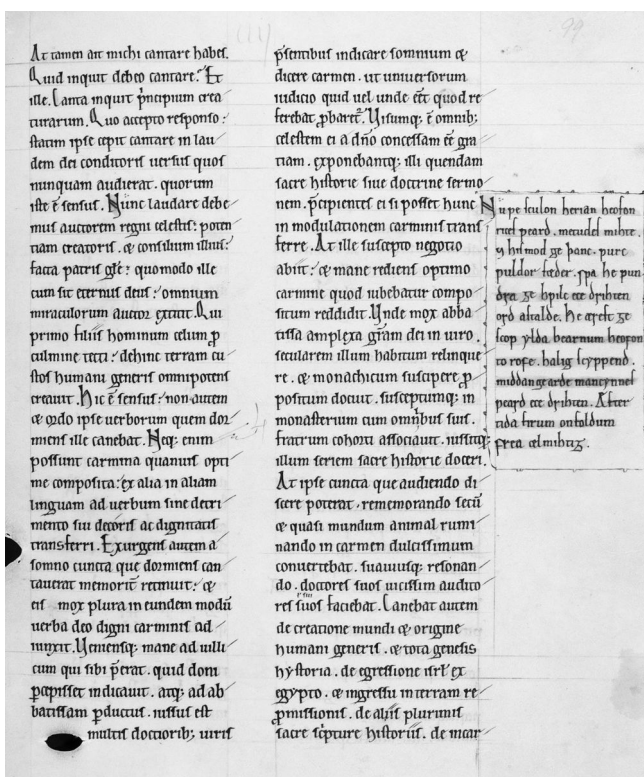 At tamen ait michi cantare habes.
Quid inquit debeo cantare? Et
ille. Canta inquit p̄ncipium crea
turarum. Quo accepto responso:
statim ipse cepit cantare in lau
dem dei conditoris uersus quos
nunquam audierat. quorum
iste ē sensus. Nunc laudare debe
mus auctorem regni celestis: poten
tiam creatoris. & consilium illius:
facta patris gl̄e: quomodo ille
cum sit eternus deus: omnium
miraculorum auctor extitit. Qui
primo filiis hominum celum ꝓ
culmine tecti: dehinc terram cu
stos humani generis omnipotens
creauit. Hic ē sensus: non autem
& ordo ipse uerborum quem dor
miens ille canebat. Neq; enim
possunt carmina quamuis opti
me composita: ex alia in aliam
linguam ad uerbum sine detri
mento sui decoris ac dignitatis
transferri. Exurgens autem a
somno cuncta que dormiens can
tauerat memorit̄ retinuit: &
eis mox plura in eundem modū
uerba deo digni carminis ad
iunxit. Ueniensq; mane ad uilli
cum qui sibi p̄erat. quid doni
ꝑcepisset indicauit. atq; ad ab
batissam ꝑductus. iussus est
multis doctiorib; uiris
p̄sentibus indicare somnium &
dicere carmen. ut uniuersorum
iudicio quid uel unde ēēt quod re
ferebat ꝓbaret᷑. Uisumq; ē omnib;
celestem ei a dn̄o concessam ēē gra
tiam. exponebantq; illi quendam
sacre historie siue doctrine sermo
nem. p̄cipientes ei si posset hunc
in modulationem carminis trans
ferre. At ille suscepto negotio
abiit: & mane rediens optimo
carmine quod iubebatur compo
situm reddidit. Unde mox abba
tissa amplexa gr̄am dei in uiro.
secularem illum habitum relinque
re. & monachicum suscipere ꝓ
positum docuit. susceptumq; in
monasterium cum omnibus suis.
fratrum cohorti associauit. iussitq;
illum seriem sacre historie doceri.
At ipse cuncta que audiendo di
scere poterat. rememorando secū
& quasi mundum animal rumi
nando in carmen dulcissimum
conuertebat. suauiusq; resonan
do. doctores suos uicissim audito
res suos faciebat. Canebat autem
de creatione mundi & origine
humani generis. & tota genesis
hystoria. de egressione isrl̄ ex
egypto. & ingressu in terram re
ꝓmissionis. de aliis plurimis
sacre sc̄pture historiis. de incar
Nu ƿe sculon herian heofon
rices ƿeard. metudes mihte.
⁊ his mod ge þanc. ƿurc
ƿuldor fæder. sƿa he ƿun
dra ge hƿilc ece drihten
ord astalde. he ærest ge
scop ylda bearnum heofon
to rofe. halig scyppend.
middangearde mancynnes
ƿeard ece drihten. Æfter
tida firum on foldum
frea ælmihtig.